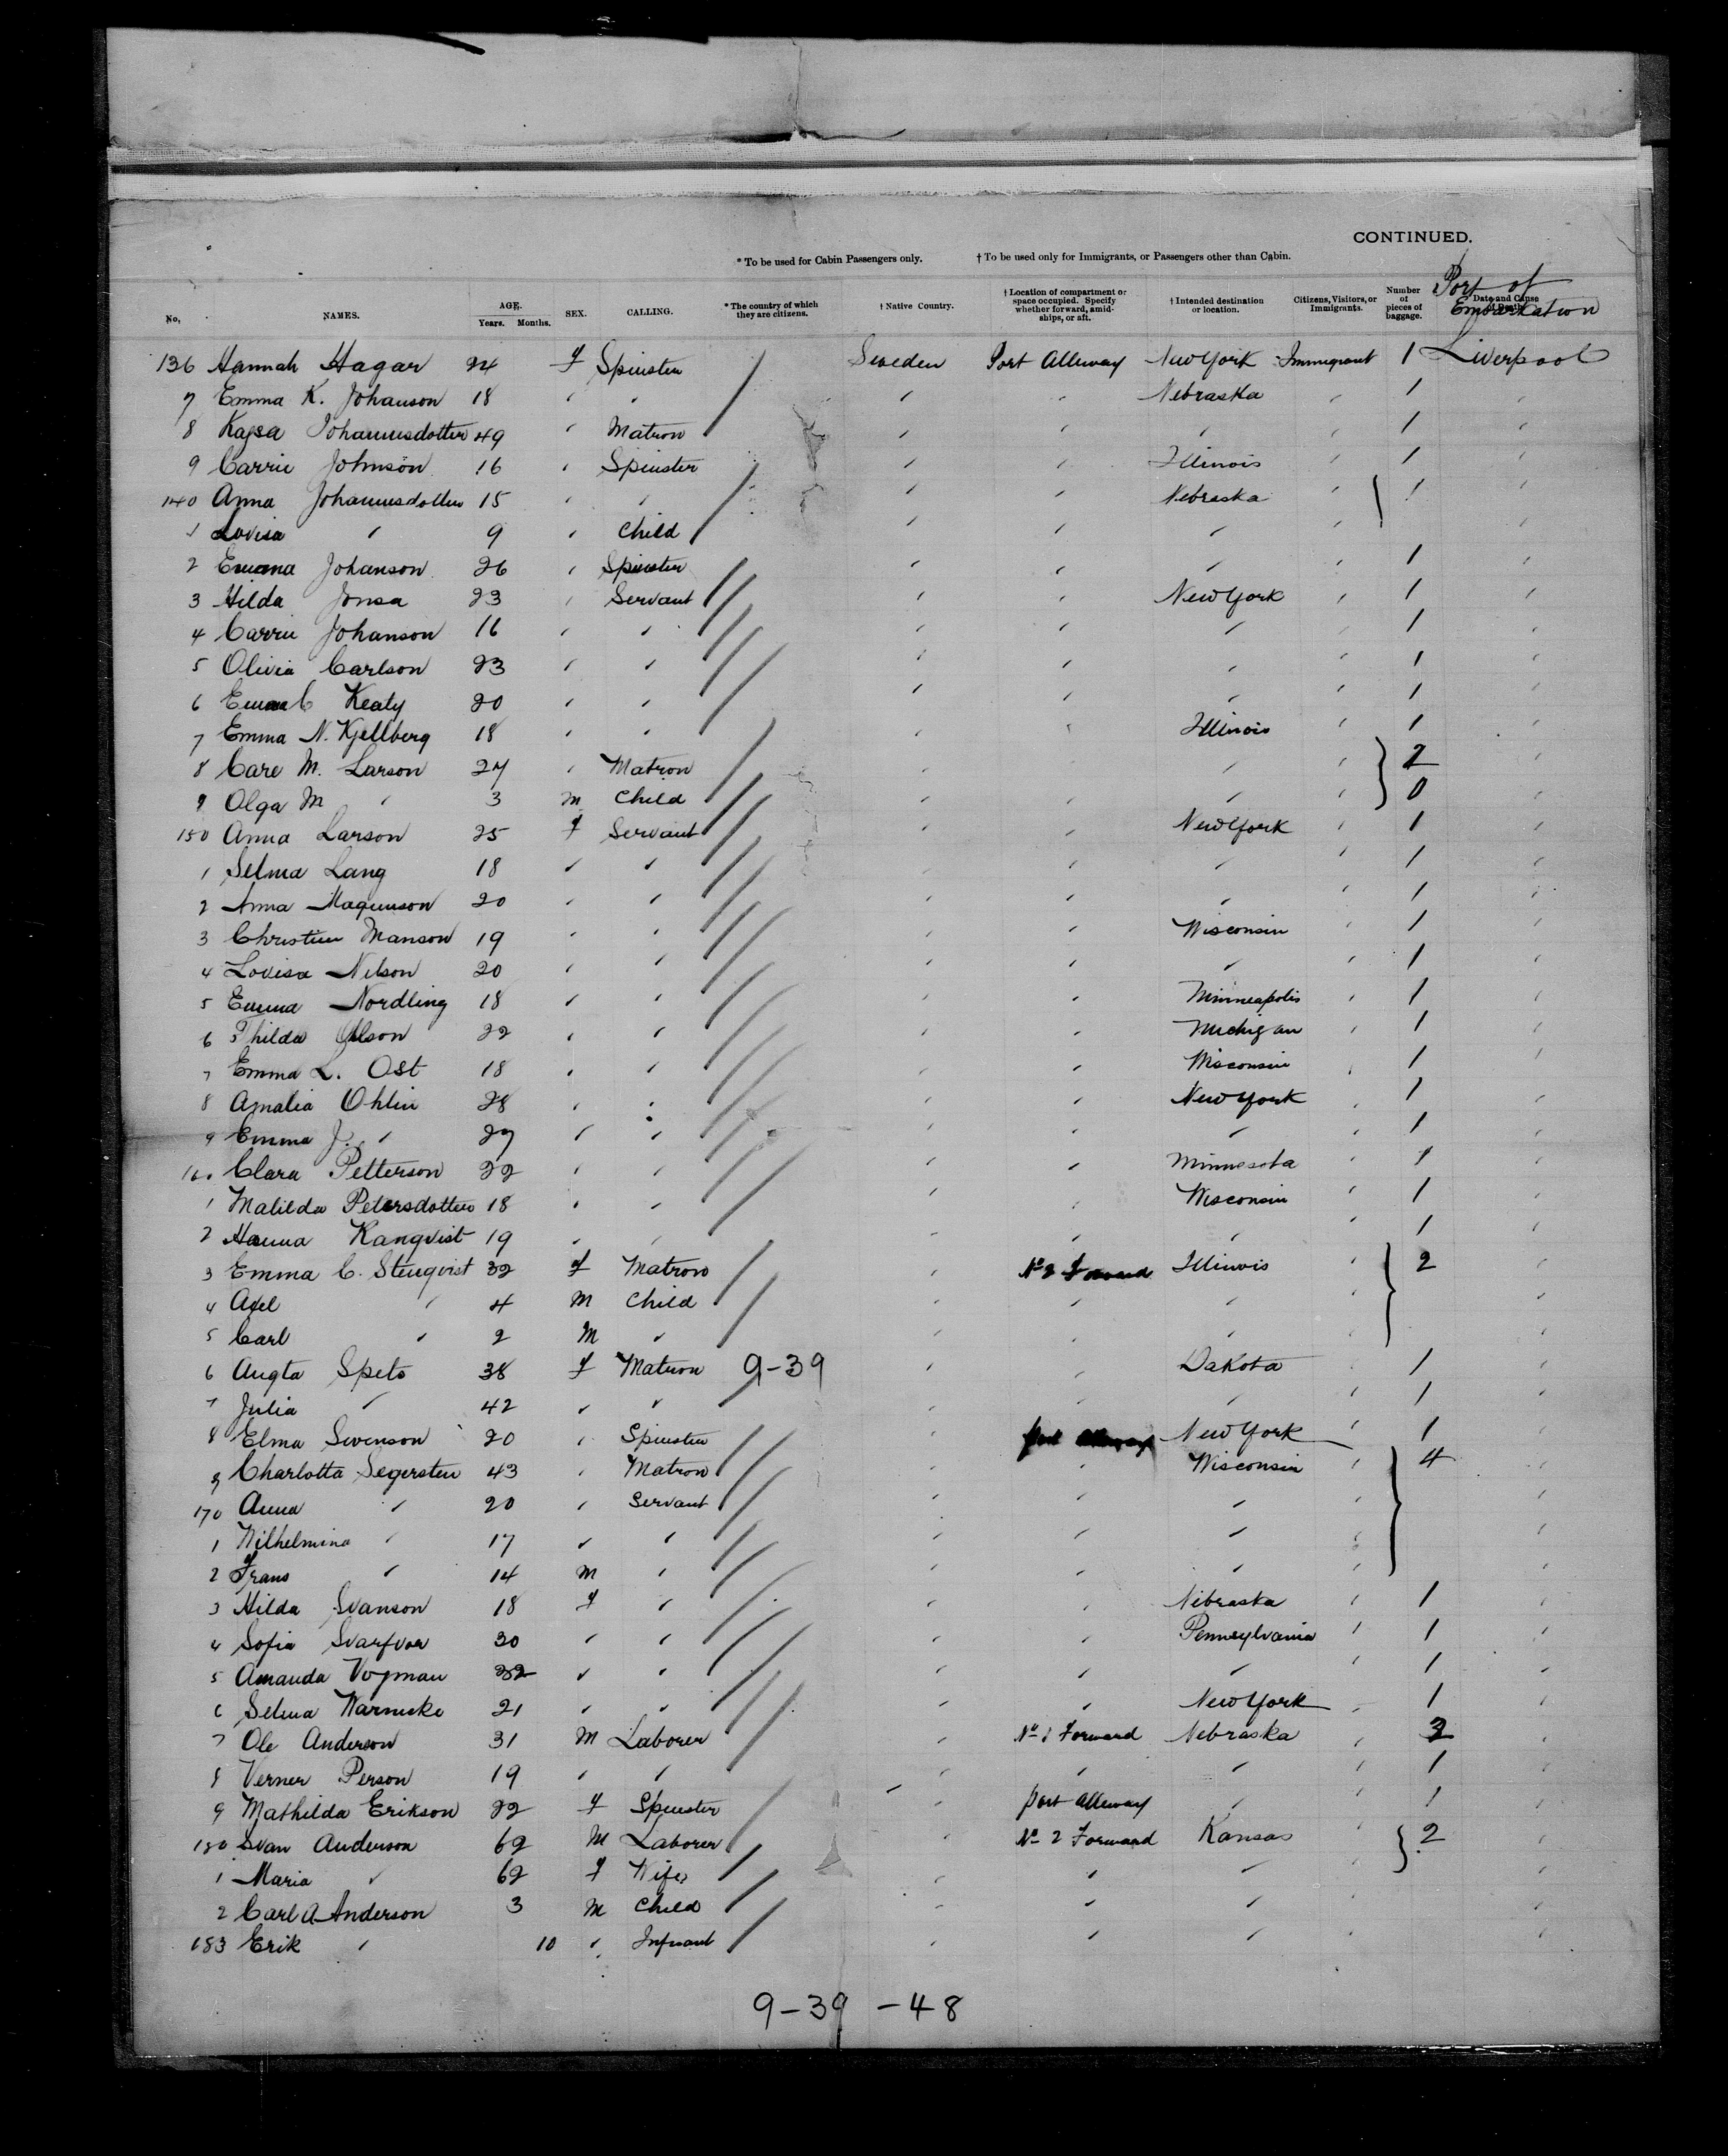 CONTINUED.
* To be used for Cabin Passengers only. † To be used only for Immigrants, or Passengers other than Cabin.
No. NAMES. AGE. Years. Months. SEX. CALLING. * The country of which they are citizens. † Native Country. † Location of compartment or space occupied. Specify whether forward, amidships, or aft. † Intended destination or location. Citizens, Visitors, or Immigrants. Number of pieces of baggage. Date and Cause of Death. Port of Embarkation
136 Hannah Hagar 24 f Spinster Sweden Port Alleway New York Immigrant 1 Liverpool
7 Emma K. Johanson 18 " " " " Nebraska " 1 "
8 Kajsa Johannesdotter 49 " Matron " " " " 1 "
9 Carrie Johnson 16 " Spinster " " Illinois " 1 "
140 Anna Johannesdotter 15 " " " " Nebraska " 1 "
1 Lovisa " 9 " Child " " " " "
2 Emma Johanson 26 " Spinster " " " 1 "
3 Hilda Jonsa 23 " Servant " " New York " 1 "
4 Carrie Johanson 16 " " " " " " 1 "
5 Olivia Carlson 23 " " " " " " 1 "
6 Emma C Kealy 20 " " " " " " 1 "
7 Emma N. Kjellberg 18 " " " " Illinois " 1 "
8 Care M. Larson 27 " Matron " " " " 2 "
9 Olga M " 3 M Child " " " " 0 "
150 Anna Larson 25 f Servant " " New York " 1 "
1 Selma Lang 18 " " " " " " 1 "
2 Anna Magnuson 20 " " " " " " 1 "
3 Christin Manson 19 " " " " Wisconsin " 1 "
4 Lovisa Nilson 20 " " " " " " 1 "
5 Emma Nordling 18 " " " " Minneapolis " 1 "
6 Thilda Olson 22 " " " " Michigan " 1 "
7 Emma L. Ost 18 " " " " Wisconsin " 1 "
8 Amalia Ohlin 28 " " " " New York " 1 "
9 Emma J. " 27 " " " " " " 1 "
160 Clara Petterson 22 " " " " Minnesota " 1 "
1 Matilda Petersdotter 18 " " " " Wisconsin " 1 "
2 Hanna Ranqvist 19 " " " " " " 1 "
3 Emma C. Stenqvist 32 f Matron " No 2 Forward Illinois " 2 "
4 Axel " 4 M Child " " " " "
5 Carl " 2 M " " " " " "
6 Augta Speto 38 f Matron 9-39 " " Dakota " 1 "
7 Julia " 42 " " " " " " 1 "
8 Elma Swenson 20 " Spinster " Port Alleway New York " 1 "
9 Charlotta Segersten 43 " Matron " " Wisconsin " 4 "
170 Anna " 20 " Servant " " " " "
1 Wilhelmina " 17 " " " " " " "
2 Frans " 14 M " " " " " "
3 Hilda Svanson 18 f " " " Nebraska " 1 "
4 Sofia Svarfvar 30 " " " " Pennsylvania " 1 "
5 Amanda Vogman 32 " " " " " " 1 "
6 Selma Warnicke 21 " " " " New York " 1 "
7 Ole Anderson 31 M Laborer " No 1 Forward Nebraska " 2 "
8 Verner Person 19 " " " " " 1 "
9 Mathilda Erikson 22 f Spinster " Port Alleway " " 1 "
180 Svan Anderson 62 M Laborer " No 2 Forward Kansas " 2 "
1 Maria " 62 f Wife " " " " "
2 Carl A Anderson 3 M Child " " " " "
183 Erik " 10 " Infant " " " " "
9-39 -48